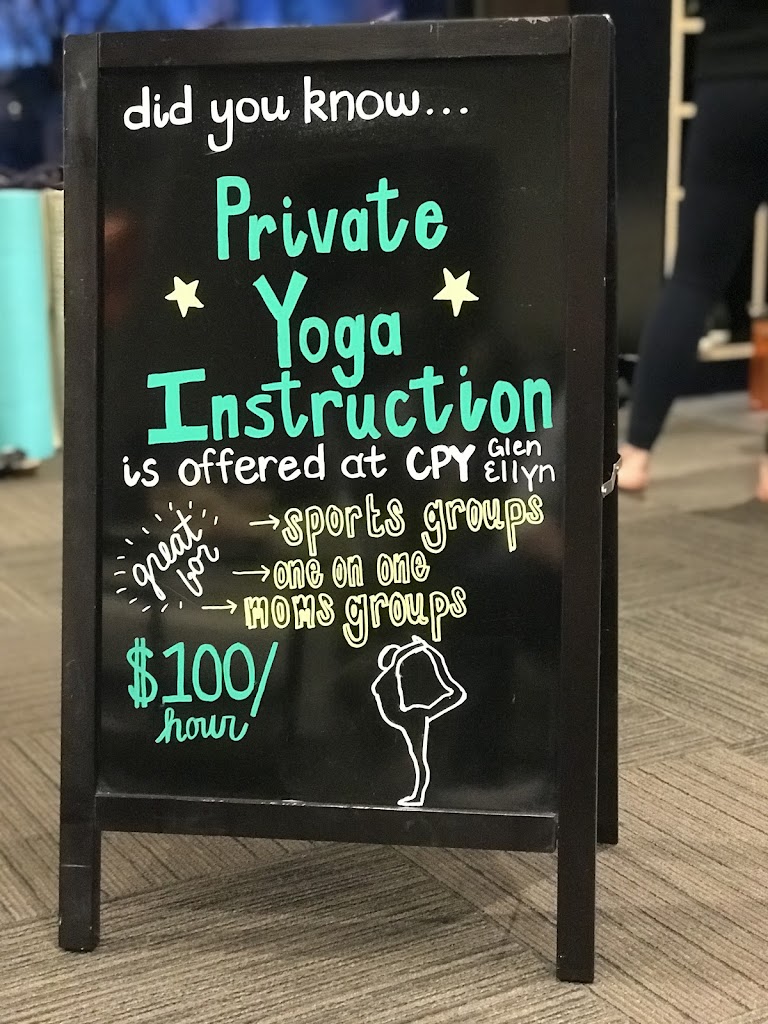 did you know...
Private
Yoga
Instruction
is offered at CPY Glen Ellyn
great for
→sports groups
→one on one
→moms groups
$100/
hour